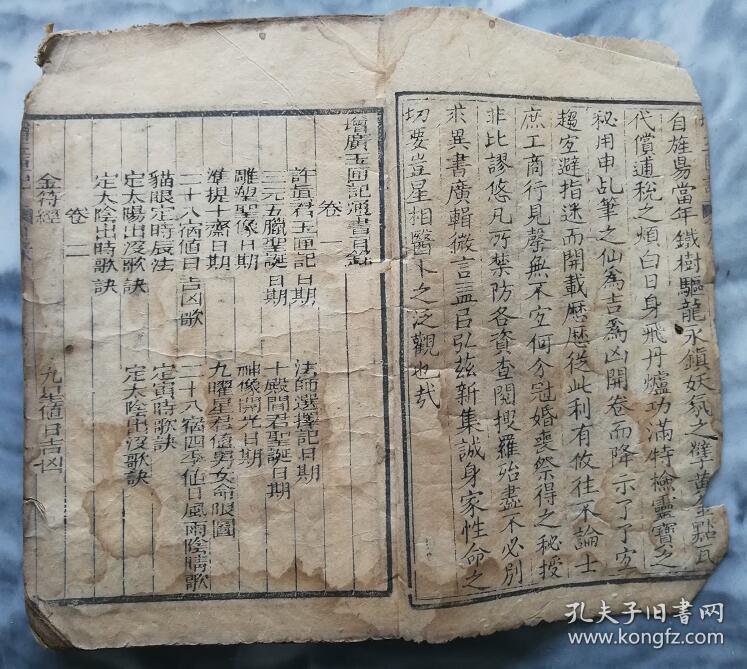 自旌昜當年鐵樹驅龍永鎮妖氛之孽黃金點瓦
代償逋稅之煩白日身飛丹爐功滿特檢靈寶之
秘用申乩筆之仙為吉為凶開卷而降示了了宜
趨宜避指迷而開載歷歷從此利有攸往不論士
庶工商行見罄無不宜何分冠婚喪祭得之秘授
非比謬悠凡所禁防各資查閱搜羅殆盡不必別
求異書廣輯微言盖㠯弘茲新集誠身家性命之
切要豈星相醫卜之泛觀也哉
增廣玉匣記通書目錄
卷一
許真君玉匣記日期
法師選擇記日期
三元五臘聖誕日期
十殿閻君聖誕日期
雕塑聖像日期
神像開光日期
準提十齋日期
九曜星君值男女命限圖
二十八宿値日吉凶歌
二十八宿四季値日風雨陰晴歌
貓眼定時辰法
定寅時歌訣
定太陽出沒歌訣
定太陰出沒歌訣
定太陰出時歌訣
卷二
金符經
九星値日吉凶
孔夫子旧书网
www.kongfz.com